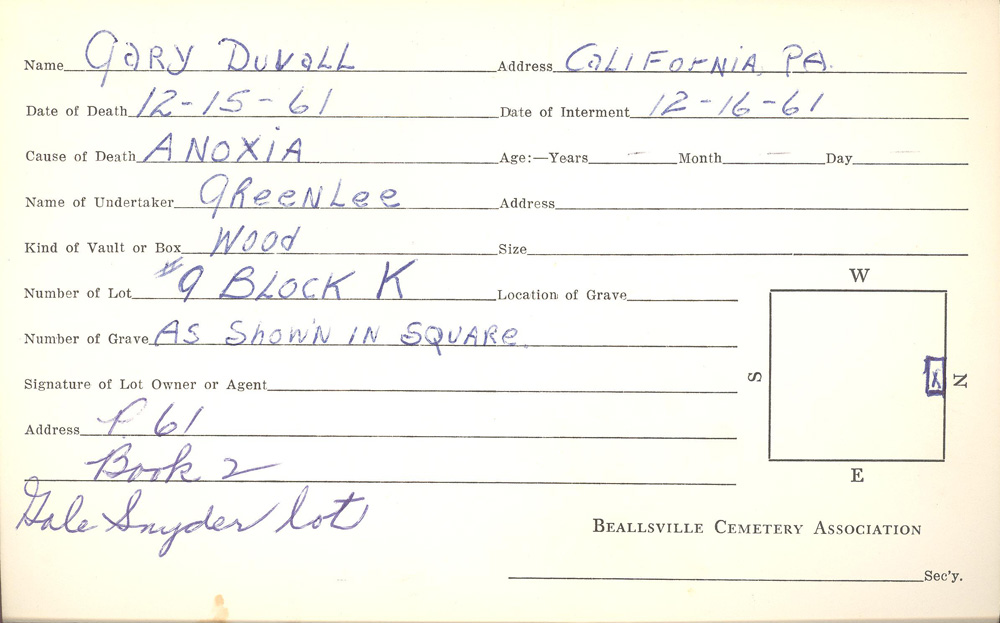 Name GARY DUVALL Address CALIFORNIA, PA.
Date of Death 12-15-61 Date of Interment 12-16-61
Cause of Death ANOXIA Age:—Years — Month — Day —
Name of Undertaker GReeNLee Address
Kind of Vault or Box WOOd Size
Number of Lot #9 BLOCK K Location of Grave
Number of Grave AS ShowN IN SQUARe.
Signature of Lot Owner or Agent
Address P. 61
Book 2
Gale Snyder lot
W
S X N
E
BEALLSVILLE CEMETERY ASSOCIATION
Sec'y.